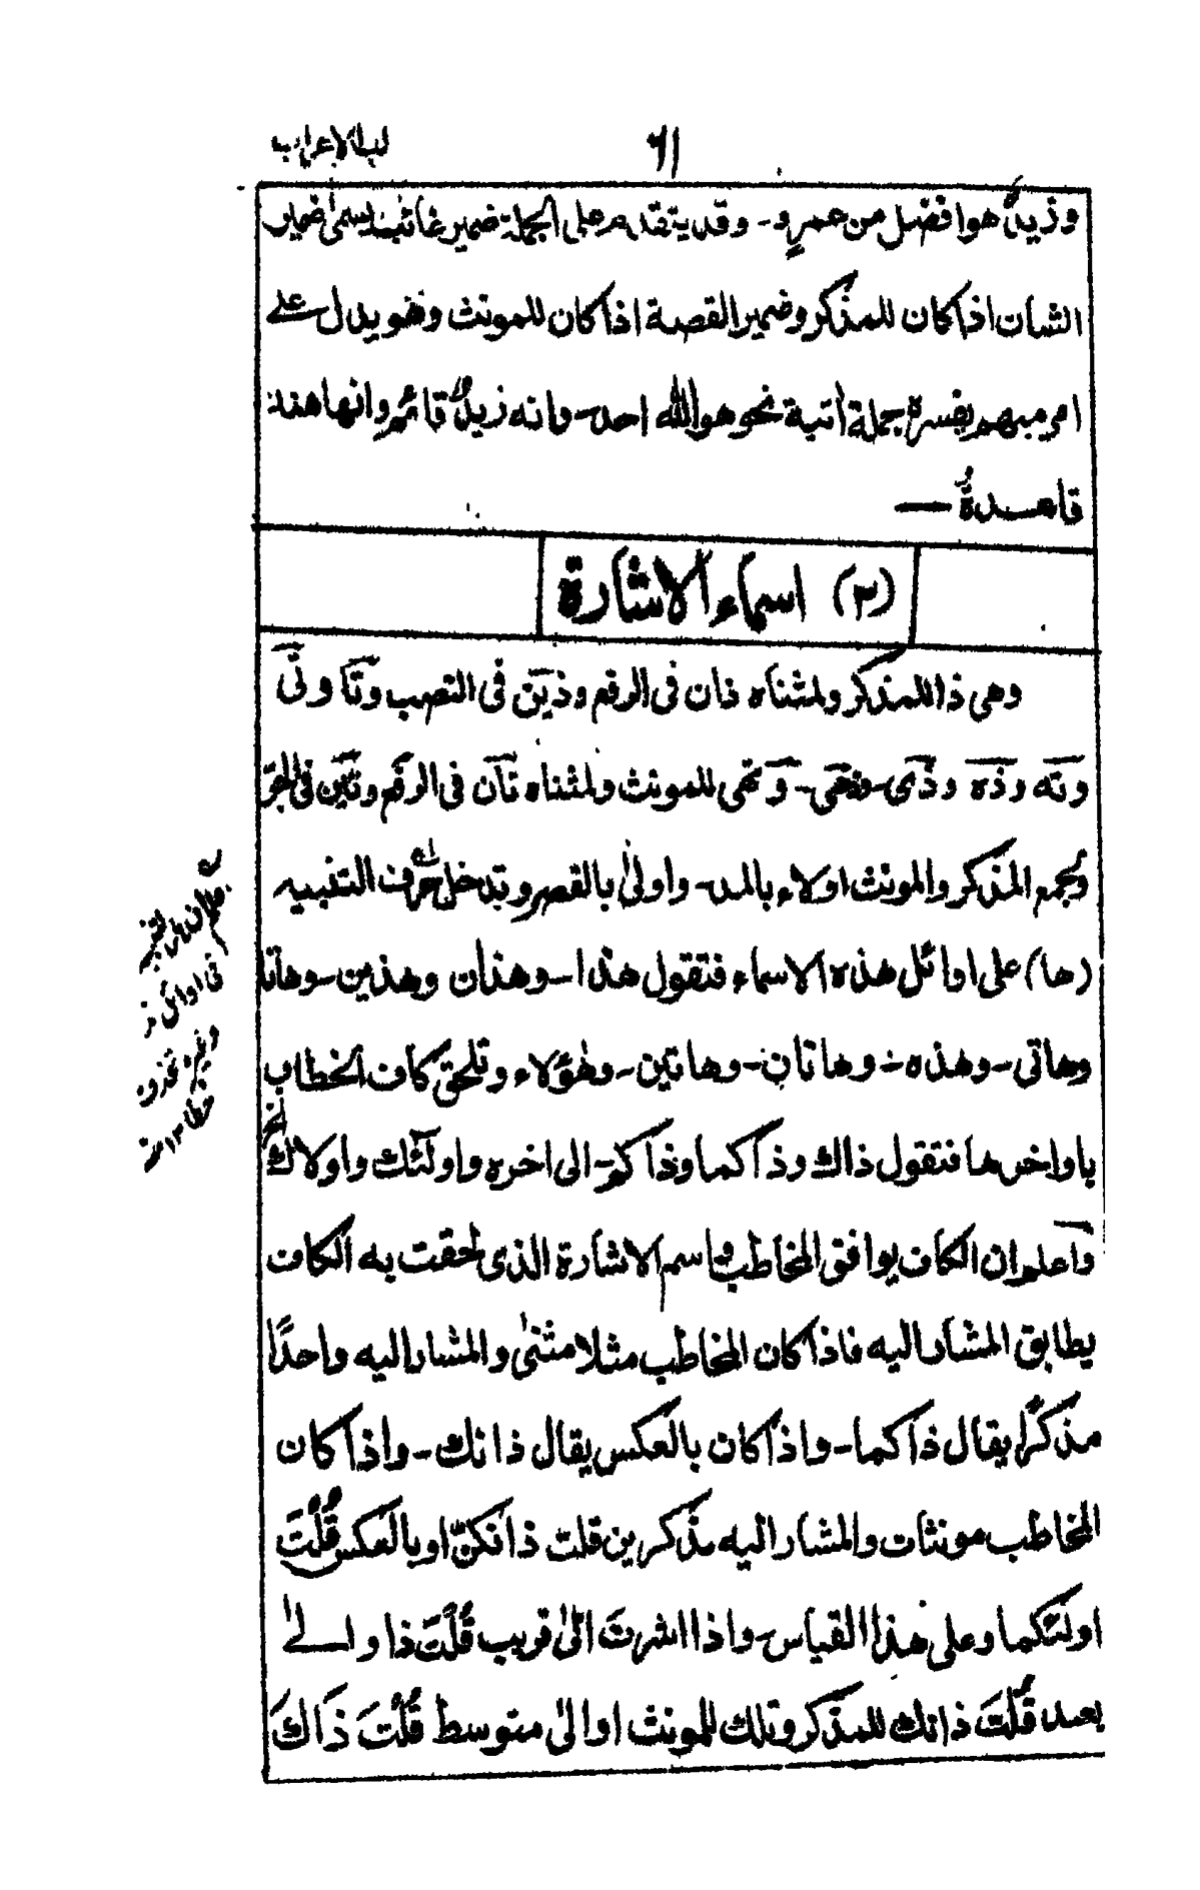 لب الاعراب
٦١
وزيدٌ هو افضل من عمرٍو- وقد يتقدم على الجملة ضمير غائب يسمى ضمير
الشان اذا كان للمذكر وضمير القصة اذا كان للمونث وهو يدل على
امر مبهم يفسره جملة اٰتية نحو هو الله احد- وانه زيدٌ قائم وانها هند
قاعدةٌ —
(٢) اسماء الاشارة
وهى ذا للمذكر ولمثناه ذان فى الرفع وذين فى النصب وتا وتى
وته وذه وذى- وذهى- وتهى للمونث ولمثناه تان فى الرفع وتين فى الجر
ويجمع المذكر والمونث اولاء بالمد- واولىٰ بالقصر وتدخل حرف التنبيه
(ها) على اوائل هذه الاسماء فتقول هذا- وهذان وهذين- وهاتا
وهاتى- وهذه- وهاتان- وهاتين- وهٰؤلاء وتلحق كاف الخطاب
باواخرها فتقول ذاك وذاكما وذاكم- الى اخره واولٰئك واولاك
واعلم ان الكاف يوافق المخاطب واسم الاشارة الذى لحقت به الكاف
يطابق المشار اليه فاذا كان المخاطب مثلا مثنىٰ والمشار اليه واحدًا
مذكرًا يقال ذاكما- واذا كان بالعكس يقال ذانك- واذا كان
المخاطب مونثات والمشار اليه مذكرين قلت ذانكنّ او بالعكس قُلْتَ
اولئكما وعلى هذا القياس- واذا اشرتَ الىٰ قريب قُلْتَ ذا والىٰ
بعيد قُلْتَ ذانك للمذكر وتلك للمونث او الىٰ متوسط قُلْتَ ذَاكَ
فى اوائل